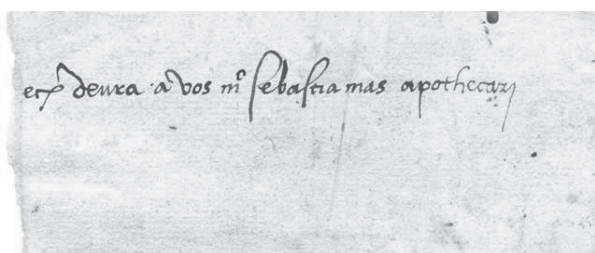 ecꝭ deura a vos mº sebastia mas apothecari